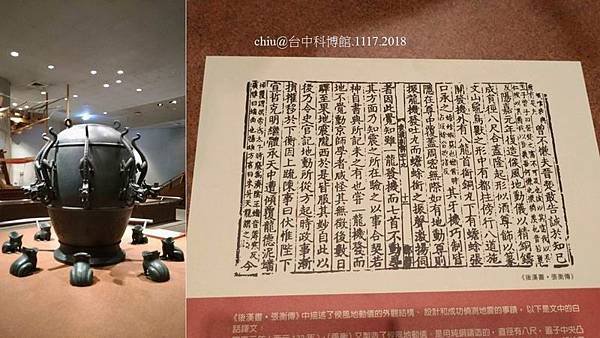 chiu@台中科博館.1117.2018
曾不慊夫晉楚敢告誠於知己
陽嘉元年復造候風地動儀以精銅鑄
成員徑八尺合蓋隆起形似酒尊飾以篆
文山龜鳥獸之形中有都柱傍行八道施
關發機外有八龍首銜銅丸下有蟾蜍張
口承之 其牙機巧制皆
隱在尊中覆蓋周密無際如有地動尊則
振龍機發吐丸而蟾蜍銜之振聲激揚伺
者因此覺知雖一龍發機而七首不動尋
其方面乃知震之所在驗之以事合契若
神自書典所記未之有也嘗一龍機發而
地不覺動京師學者咸怪其無徵後數日
驛至果地震隴西於是皆服其妙自此以
後乃令史官記地動所從方起時政事漸
損權移於下衡因上疏陳事曰伏惟陛下
宣哲克明繼體承天中遭傾覆龍德泥蟠
今
《後漢書・張衡傳》
《後漢書・張衡傳》中描述了候風地動儀的外觀結構、設計和成功偵測地震的事蹟，以下是文中的白
話譯文：
又製造了候風地動儀。是用純銅鑄造的，直徑有八尺，蓋子中央凸